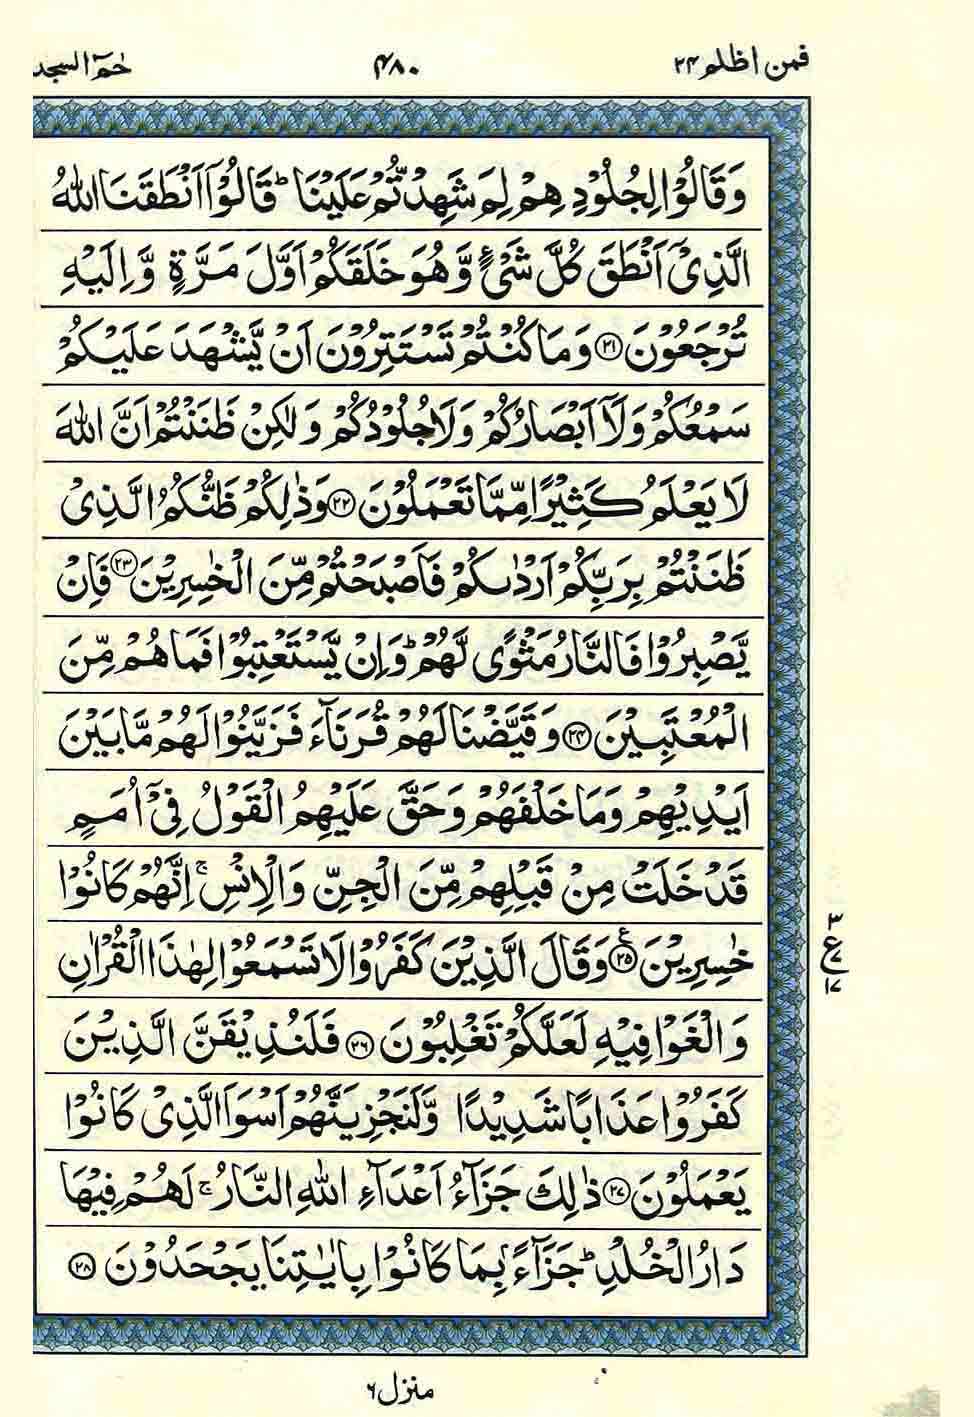 فمن اظلم ۲۴
۴۸۰
حٰمٓ السجد
وَقَالُوْا لِجُلُوْدِهِمْ لِمَ شَهِدْتُّمْ عَلَيْنَا ؕ قَالُوْۤا اَنْطَقَنَا اللّٰهُ
الَّذِیْۤ اَنْطَقَ كُلَّ شَیْءٍ وَّهُوَ خَلَقَكُمْ اَوَّلَ مَرَّةٍ وَّاِلَيْهِ
تُرْجَعُوْنَ ۲۱ وَمَا كُنْتُمْ تَسْتَتِرُوْنَ اَنْ يَّشْهَدَ عَلَيْكُمْ
سَمْعُكُمْ وَلَاۤ اَبْصَارُكُمْ وَلَا جُلُوْدُكُمْ وَلٰكِنْ ظَنَنْتُمْ اَنَّ اللّٰهَ
لَا يَعْلَمُ كَثِيْرًا مِّمَّا تَعْمَلُوْنَ ۲۲ وَذٰلِكُمْ ظَنُّكُمُ الَّذِیْ
ظَنَنْتُمْ بِرَبِّكُمْ اَرْدٰىكُمْ فَاَصْبَحْتُمْ مِّنَ الْخٰسِرِيْنَ ۲۳ فَاِنْ
يَّصْبِرُوْا فَالنَّارُ مَثْوًى لَّهُمْ ؕ وَاِنْ يَّسْتَعْتِبُوْا فَمَا هُمْ مِّنَ
الْمُعْتَبِيْنَ ۲۴ وَقَيَّضْنَا لَهُمْ قُرَنَآءَ فَزَيَّنُوْا لَهُمْ مَّا بَيْنَ
اَيْدِيْهِمْ وَمَا خَلْفَهُمْ وَحَقَّ عَلَيْهِمُ الْقَوْلُ فِیْۤ اُمَمٍ
قَدْ خَلَتْ مِنْ قَبْلِهِمْ مِّنَ الْجِنِّ وَالْاِنْسِ ۚ اِنَّهُمْ كَانُوْا
خٰسِرِيْنَ ۲۵ ع وَقَالَ الَّذِيْنَ كَفَرُوْا لَا تَسْمَعُوْا لِهٰذَا الْقُرْاٰنِ
۳
ع ۷
۱۷
وَالْغَوْا فِيْهِ لَعَلَّكُمْ تَغْلِبُوْنَ ۲۶ فَلَنُذِيْقَنَّ الَّذِيْنَ
كَفَرُوْا عَذَابًا شَدِيْدًا وَّلَنَجْزِيَنَّهُمْ اَسْوَاَ الَّذِیْ كَانُوْا
يَعْمَلُوْنَ ۲۷ ذٰلِكَ جَزَآءُ اَعْدَآءِ اللّٰهِ النَّارُ ۚ لَهُمْ فِيْهَا
دَارُ الْخُلْدِ ؕ جَزَآءًۢ بِمَا كَانُوْا بِاٰيٰتِنَا يَجْحَدُوْنَ ۲۸
منزل ۶